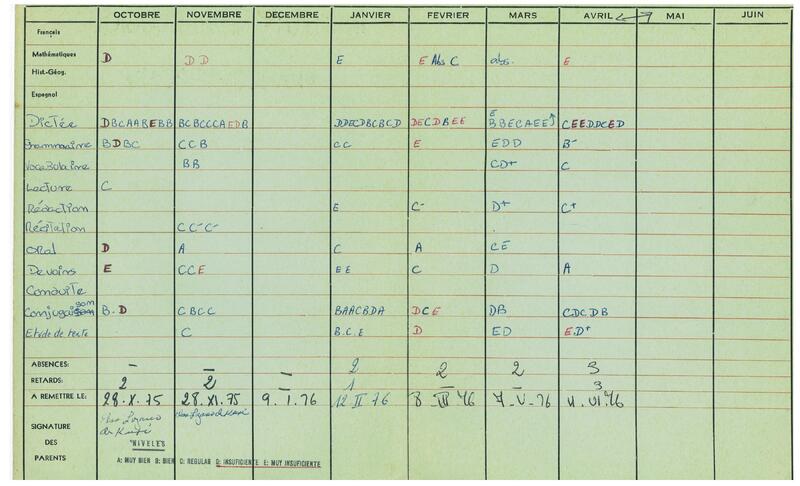 OCTOBRE NOVEMBRE DECEMBRE JANVIER FEVRIER MARS AVRIL MAI JUIN
Français
Mathématiques D D D E E Abs C abs. E
Hist.-Géog.
Espagnol
Dictée DBCAABEBB BCBCCCAEDB DDECDBCBCD DECDBEE E BBECAEE CEEDDCED
Grammaire BDBC CCB CC E EDD B-
Vocabulaire BB CD+ C
Lecture C
Rédaction E C- D+ C+
Récitation CC-C-
Oral D A C A CE
Devoirs E CCE EE C D A
Conduite
Conjugaison B.D CBCC BAACBDA DCE DB CDCDB
Etude de texte C B.C.E D ED E.D+
ABSENCES: – – – 2 2 2 3
RETARDS: 2 2 – 1 – – 3
A REMETTRE LE: 28.X.75 28.XI.75 9.I.76 12 II 76 8 III 76 7-V-76 11.VI.76
SIGNATURE
DES
PARENTS
"NIVELES
A: MUY BIEN B: BIEN C: REGULAR D: INSUFICIENTE E: MUY INSUFICIENTE